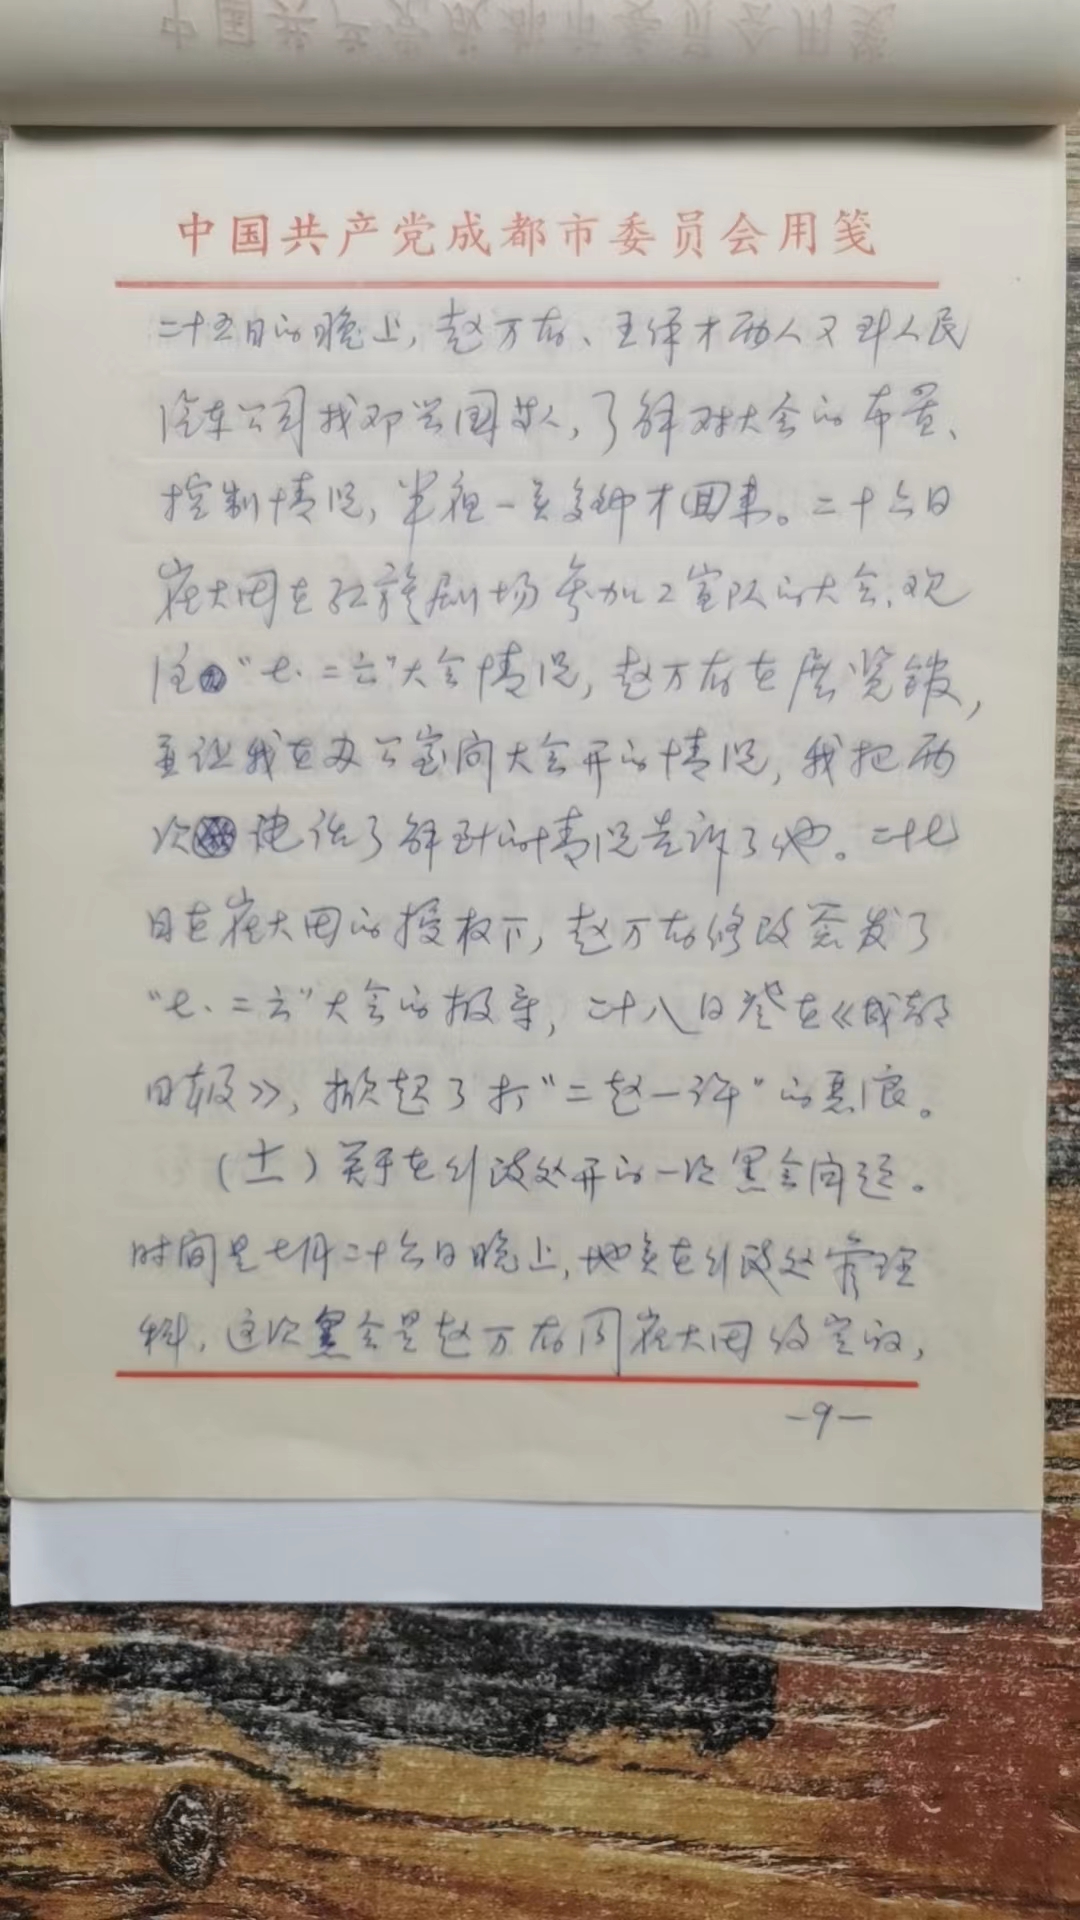 中国共产党成都市委员会用笺
二十五日的晚上，赵万有、王泽才两人又到人民
汽车公司找邓兴国等人，了解对大会的布置、
控制情况，半夜一点多钟才回来。二十六日
崔大田在红旗剧场参加工宣队的大会，观
"七·二六"大会情况，赵万有在展览馆，
并让我在办公室问大会开的情况，我把两
次电话了解到的情况告诉了他。二十七
日在崔大田的授权下，赵万有修改签发了
"七·二六"大会的报导，二十八日登在《成都
日报》，掀起了打"二赵一许"的恶浪。
（十一）关于在行政处开的一次黑会问题。
时间是七月二十六日晚上，地点在行政处管理
科，这次黑会是赵万有同崔大田约定的，
—9—